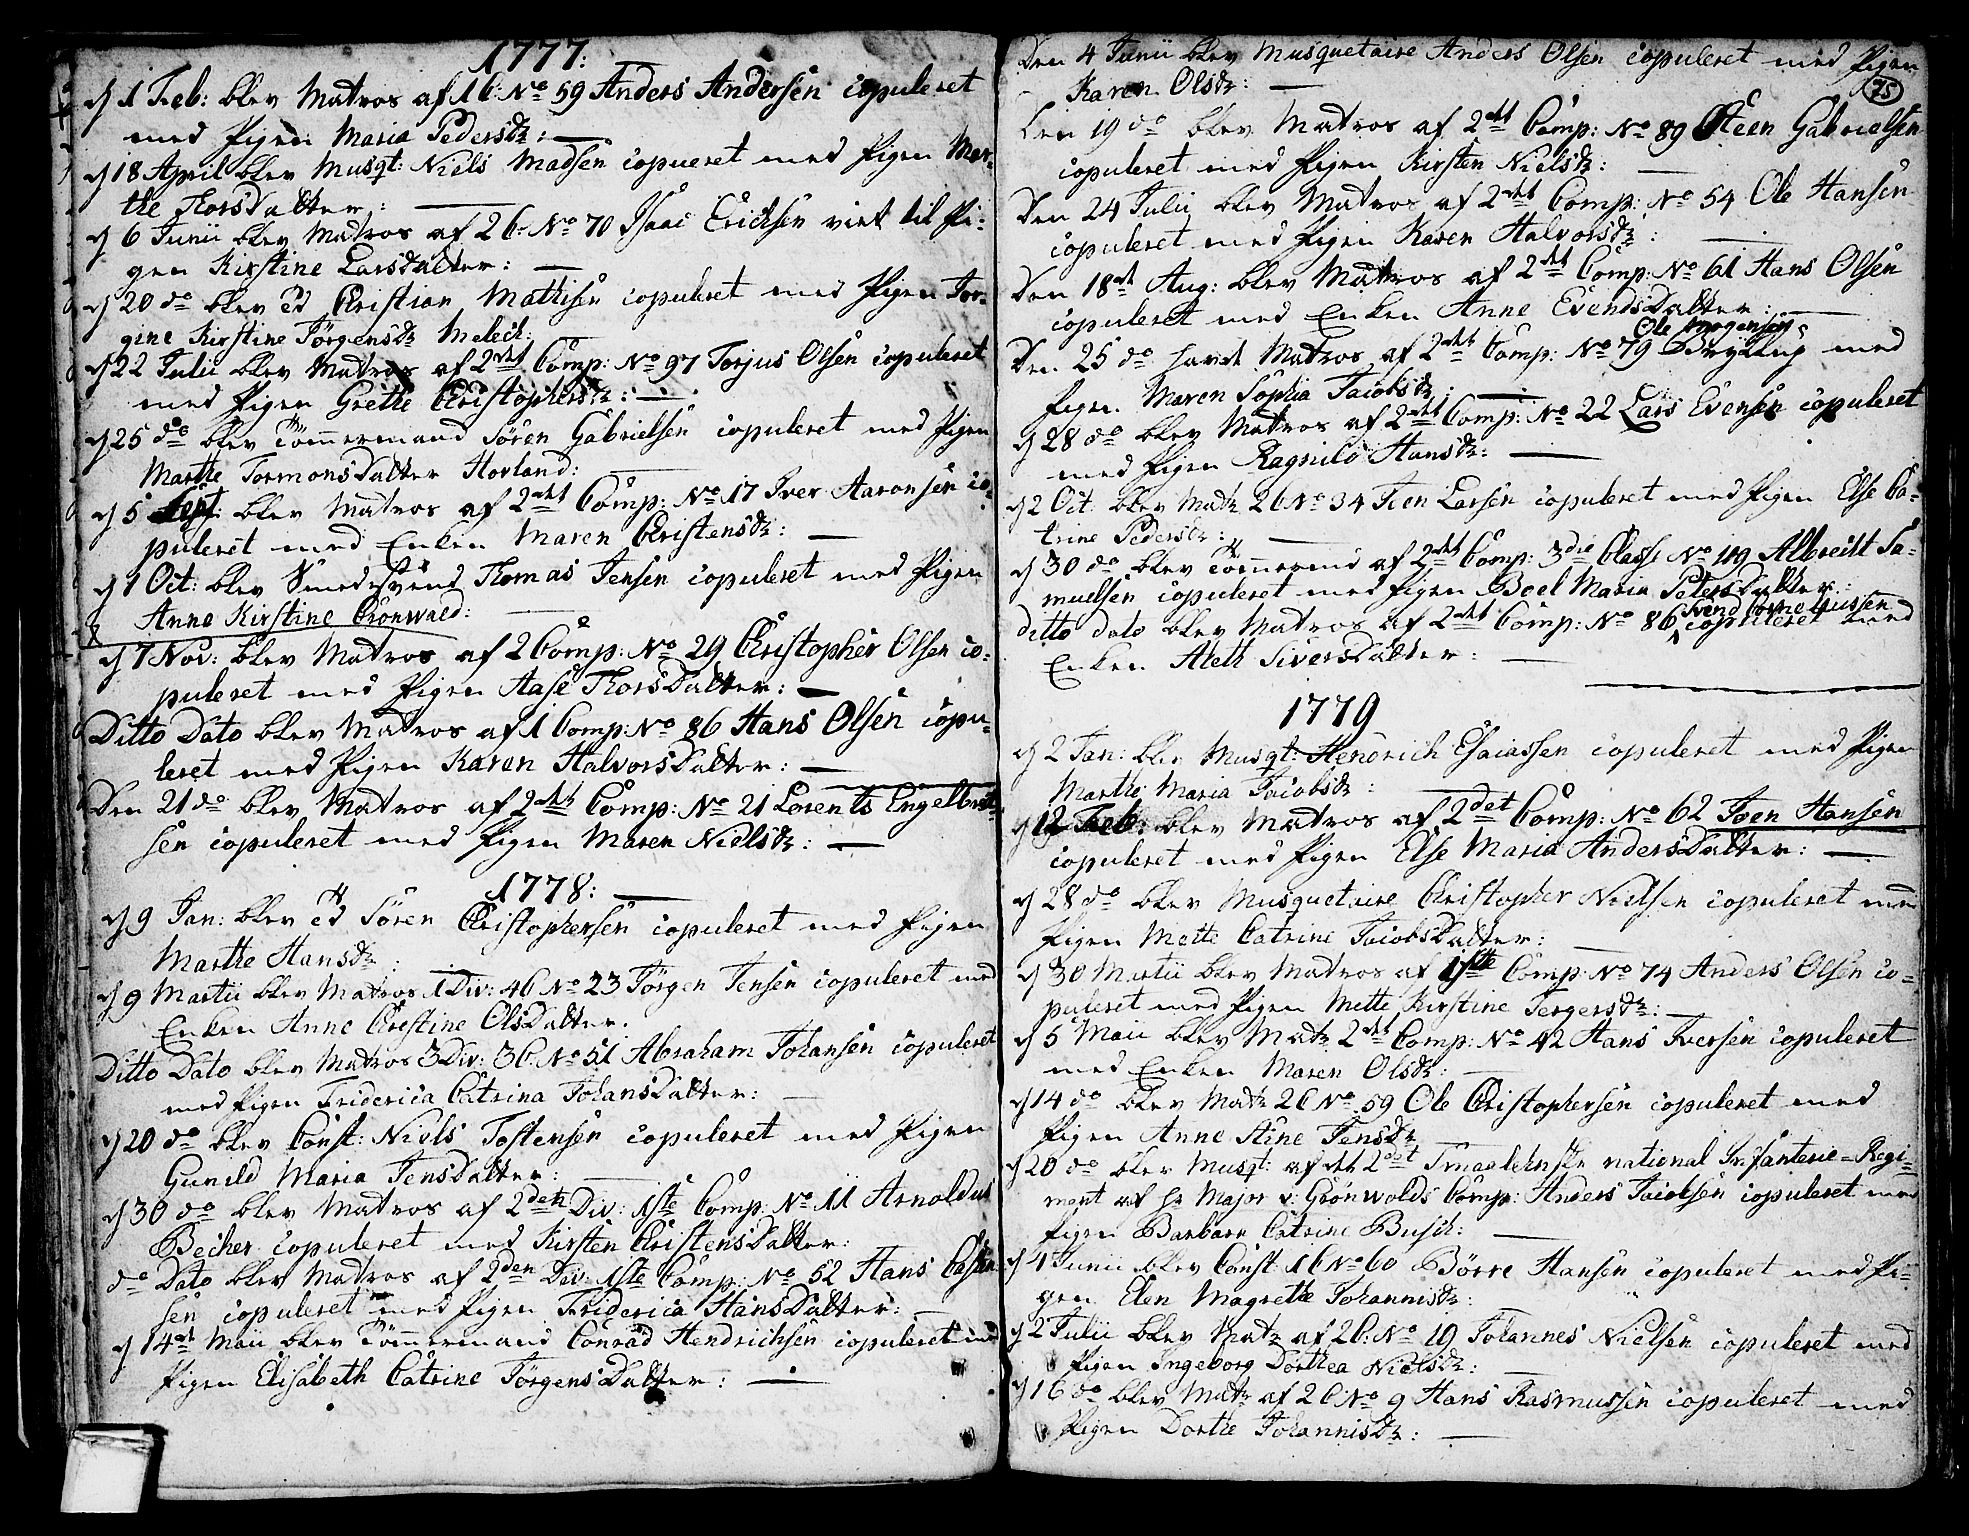 1777:
d 1 Feb: blev Matros af 1 C: No 59 Anders Andersen copuleret
med Pigen Maria Pedersdr:
d 18 April blev Musqt: Niels Madsen copueret med Pigen Mar-
the Thorsdatter:
d 6 Junii blev Matros af 2 C: No 70 Isaac Erichsen viet til Pi-
gen Kirstine Larsdatter:
d 20 do blev Christian Mathisen copuleret med Pigen Jor-
gine Kirstine Jörgensdr Melech:
d 22 Julii blev Matros af 2det Comp: No 97 Torjus Olsen copuleret
med Pigen Grethe Christophersdr:
d 25 do blev Tömmermand Sören Gabrielsen copuleret med Pigen
Marthe Tormonsdatter Hovland:
d 5 Sept: blev Matros af 2det Comp: No 17 Iver Aaronsen co-
puleret med Enken Maren Christensdr:
d 1 Oct: blev Smedesvend Thomas Jensen copuleret med Pigen
Anne Kirstine Crönwald:
d 7 Nov: blev Matros af 2 Comp: No 29 Christopher Olsen co-
puleret med Pigen Aase Thorsdatter:
Ditto Dato blev Matros af 1 Comp: No 86 Hans Olsen copu-
leret med Pigen Karen Halvorsdatter:
Den 21 do blev Matros af 2det Comp: No 21 Lorents Engelbret-
sen copuleret med Pigen Maren Nielsdr:
1778:
d 9 Jan: blev Sören Christophersen copuleret med Pigen
Marthe Hansdr:
d 9 Martii blev Matros 1 Div: 4 C No 23 Jörgen Jensen copuleret med
Enken Anne Chrestine Olsdatter.
Ditto Dato blev Matros 3 Div: 3 C: No 51 Abraham Johansen copuleret
med Pigen Friderica Catrina Johansdatter:
d 20 do blev Const: Niels Tostensen copuleret med Pigen
Gunild Maria Jensdatter:
d 30 do blev Matros af 2den Div: 1ste Comp: No 11 Arnoldus
Becher copuleret med Kirsten Christensdatter:
do Dato blev Matros af 2den Div: 1ste Comp: No 52 Hans
sen copuleret med Pigen Friderica Hansdatter:
d 14de Maii blev Tömmermand Conrad Hendrichsen copuleret med
Pigen Elisabeth Catrine Jörgensdatter:
75
Den 4 Junii blev Musquetaire Anders Olsen copuleret med Pigen
Karen Olsdr:
Den 19 do blev Matros af 2det Comp: No 89 Steen Gabrielsen
copuleret med Pigen Kirsten Nielsdr:
Den 24 Julii blev Matros af 2det Comp: No 54 Ole Hansen
copuleret med Pigen Karen Halvorsdr:
Den 18de Aug: blev Matros af 2det Comp: No 61 Hans Olsen
copuleret med Enken Anne Evendsdatter:
Ole Mogensen
Den 25 do havde Matros af 2det Comp: No 79 Brÿllup med
Pigen Maren Sophia Jacobsdr:
d 28 do blev Matros af 2det Comp: No 22 Lars Evensen copuleret
med Pigen Ragnild Hansdr:
d 2 Oct: blev Matr 2 C No 34 Joen Larsen copuleret med Pigen Else Ca-
trine Pedersdr:
d 30 do blev Tömmermd af 2det Comp: 3die Classe No 119 Albrecht Sa-
muelsen copuleret med Pigen Boel Maria Petersdatter:
Svend Cornelijussen
ditto dato blev Matros af 2det Comp: No 86 copuleret med
Enken Aleth Siversdatter:
1779
d 2 Jan: blev Musqt: Hendrich Esaiassen copuleret med Pigen
Marthe Maria Jacobsdr:
d 12 Feb: blev Matros af 2det Comp: No 62 Joen Hansen
copuleret med Pigen Else Maria Andersdatter:
d 28 do blev Musquetaire Christopher Nielsen copuleret med
Pigen Mette Catrine Jacobsdatter:
d 30 Martii blev Matros af 1ste Comp: No 74 Anders Olsen co-
puleret med Pigen Mette Kirstine Jergersdr:
d 5 Maii blev Matr 2det Comp: No 42 Hans Iversen copuleret
med Enken Maren Olsdr:
d 14 do blev Matr 2 C No 59 Ole Christophersen copuleret med
Pigen Anne Stine Jensdr
d 20 do blev Musqt: af det 2det Smaalehnske national Infanterie-Regi-
ment af Hr Major v: Grönwolds Comp: Anders Jacobsen copuleret med
Pigen Barbara Catrine Busch:
d 4 Junii blev Const 1 C No 60 Börre Hansen copuleret med Pi-
gen Elen Magrethe Johannisdr:
d 2 Julii blev Matr af 2 C: No 19 Johannes Nielsen copuleret med
Pigen Ingeborg Dorthea Nielsdr:
d 16 do blev Matr af 2 C No 9 Hans Rasmussen copuleret med
Pigen Dorthe Johannisdr: